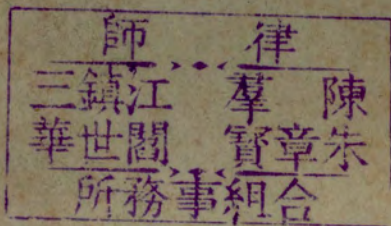 律師
陳羣 江鎮三
朱章寶 閻世華
合組事務所